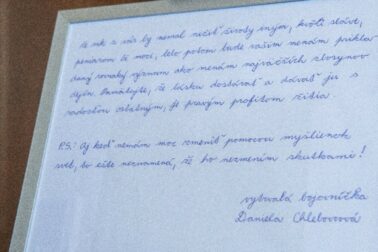 že nik z vás by nemal ničiť životy iným, kvôli sláve,
peniazom či moci, lebo potom bude vašim menám priklad
daný rovnaký význam ako menám najväčších zlosynov
dejín. Pamätajte, že lásku dostávať a dávať ju s
radosťou ostatným, je pravým profitom žitia.
P.S.: Aj keď nemám moc zmeniť pomocou myšlienok
svet, to ešte neznamená, že ho nezmením skutkami!
vytrvalá bojovníčka
Daniela Chlebovcová